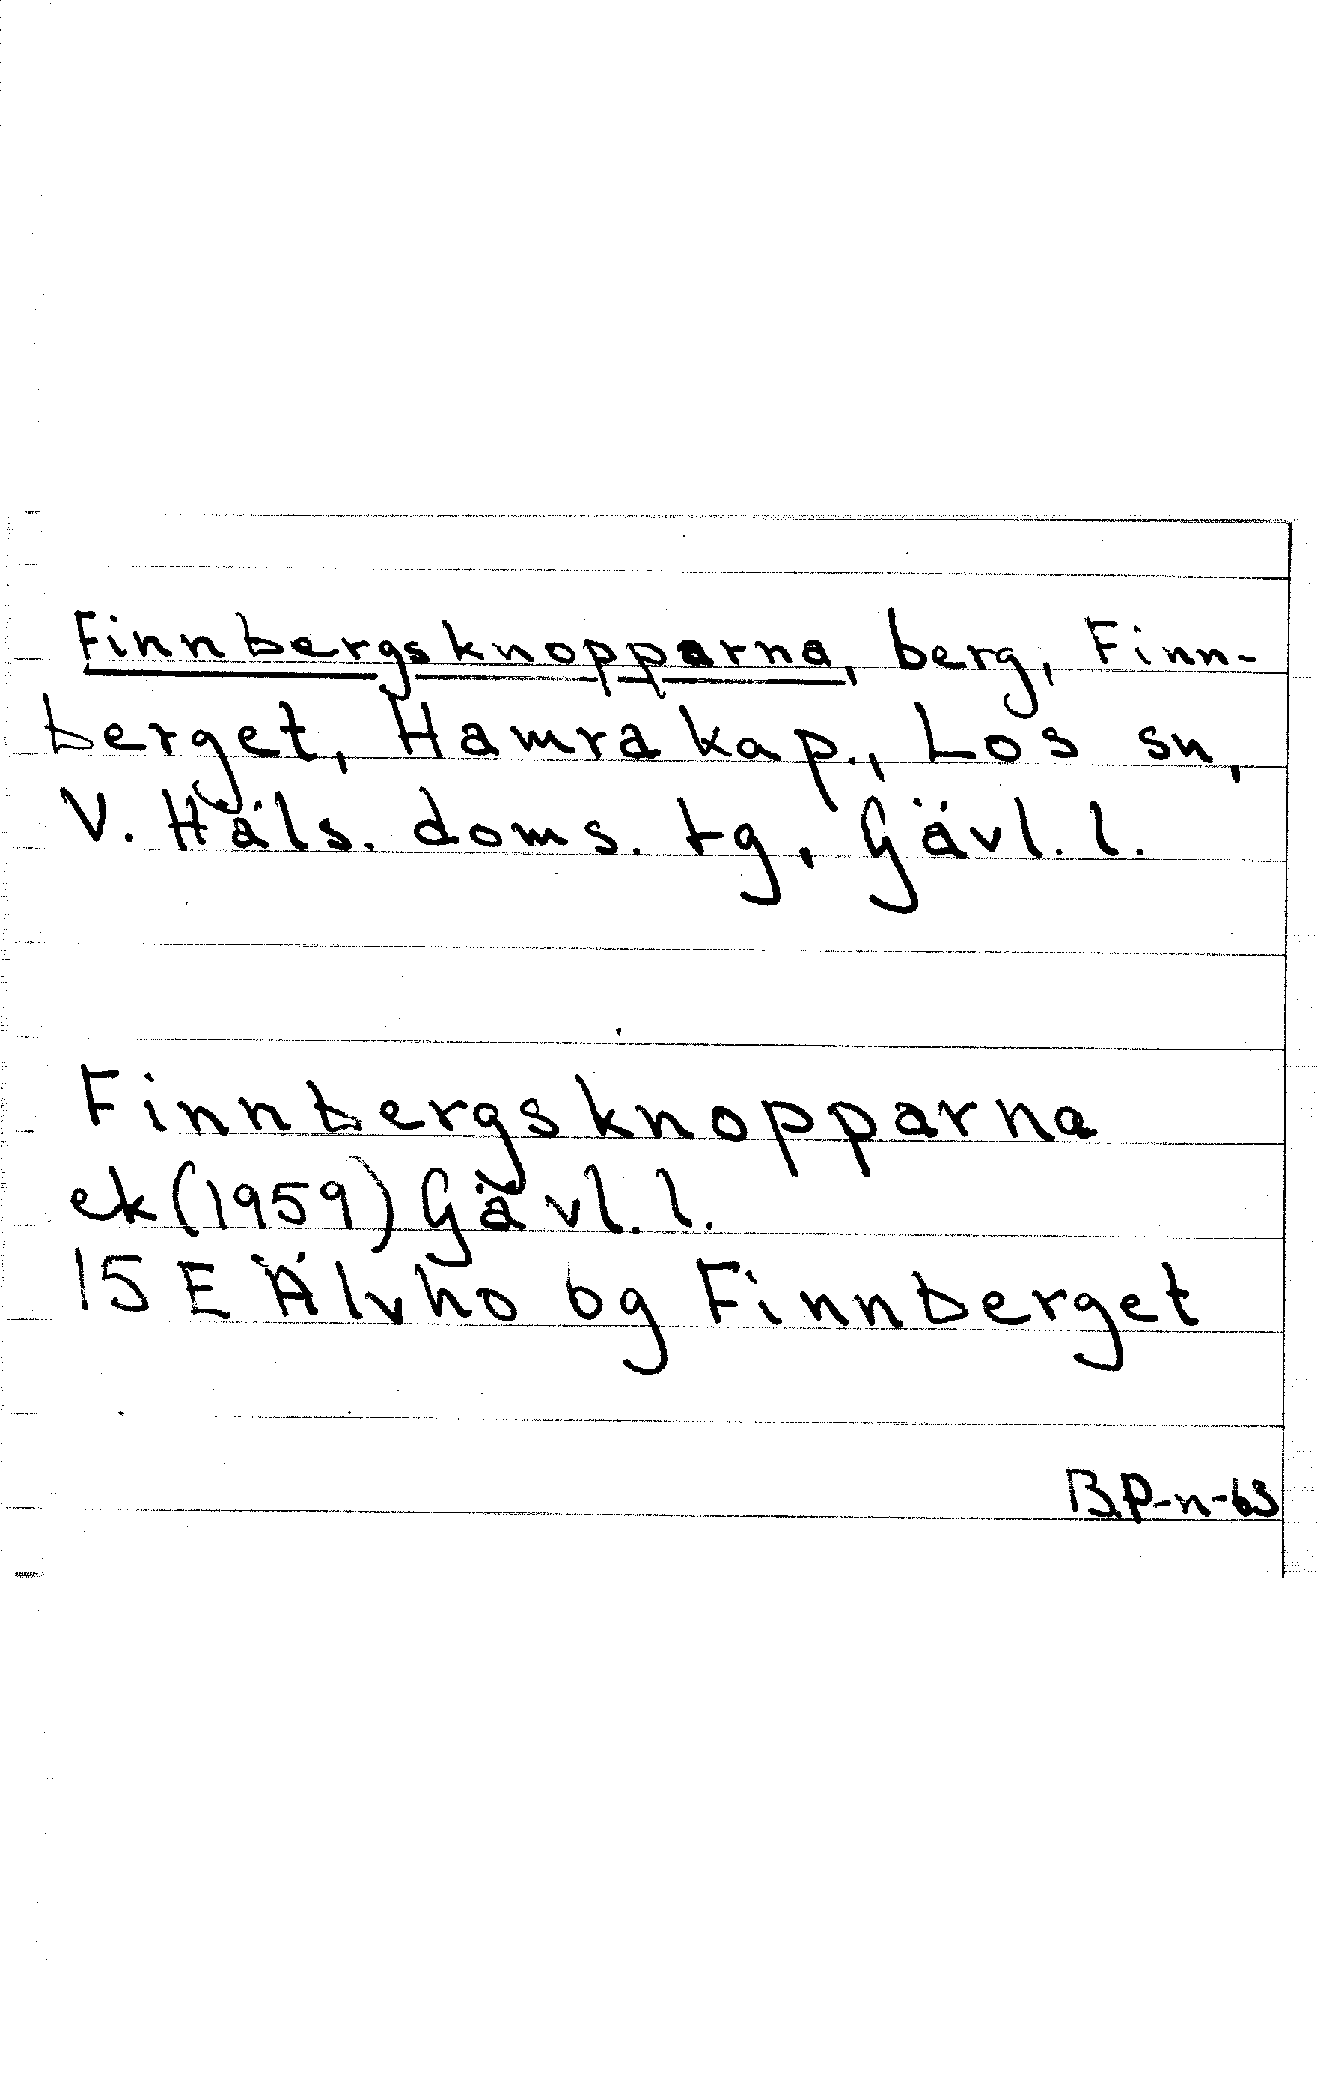 Finnbergsknopparna, berg, Finn-
berget, Hamra kap., Los sn,
V. Häls. doms. tg, Gävl. l.
Finnbergsknopparna
ek (1959) Gävl. l.
15 E Älvho bg Finnberget
B.P-n-63